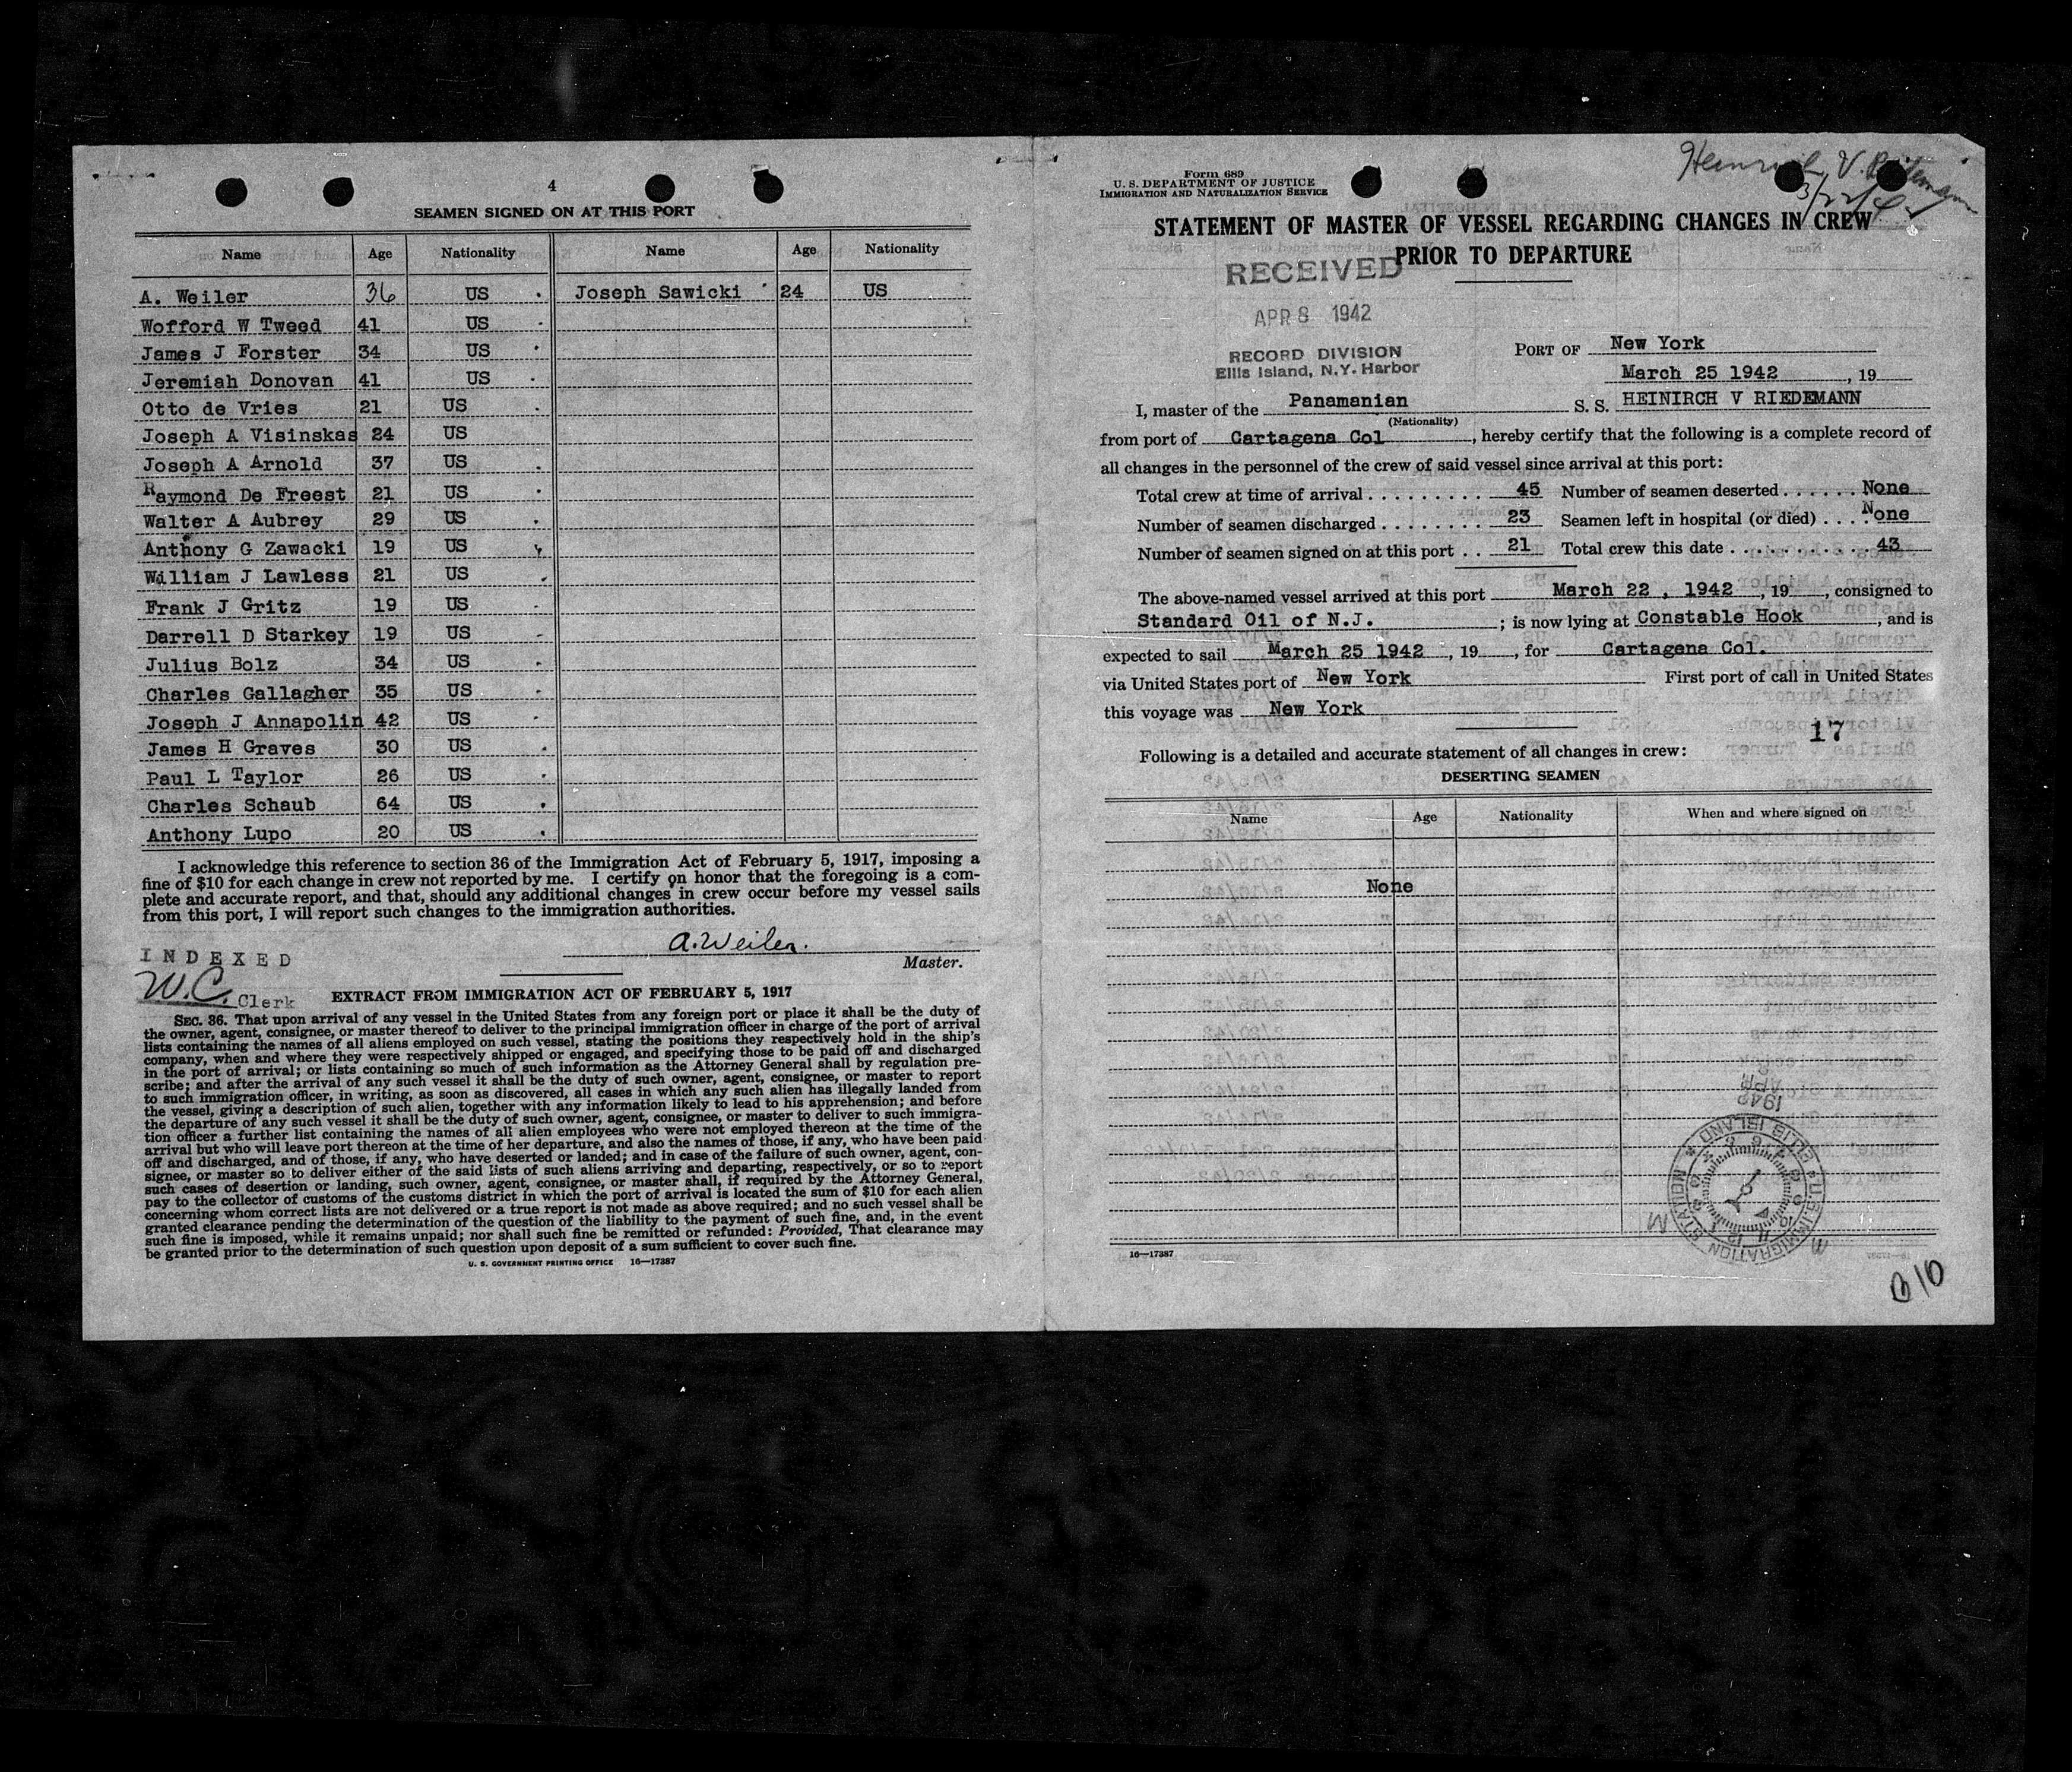 4
SEAMEN SIGNED ON AT THIS PORT
Name Age Nationality Name Age Nationality
A. Weiler 36 US Joseph Sawicki 24 US
Wofford W Tweed 41 US
James J Forster 34 US
Jeremiah Donovan 41 US
Otto de Vries 21 US
Joseph A Visinskas 24 US
Joseph A Arnold 37 US
Raymond De Freest 21 US
Walter A Aubrey 29 US
Anthony G Zawacki 19 US
William J Lawless 21 US
Frank J Gritz 19 US
Darrell D Starkey 19 US
Julius Bolz 34 US
Charles Gallagher 35 US
Joseph J Annapolin 42 US
James H Graves 30 US
Paul L Taylor 26 US
Charles Schaub 64 US
Anthony Lupo 20 US
I acknowledge this reference to section 36 of the Immigration Act of February 5, 1917, imposing a
fine of $10 for each change in crew not reported by me. I certify on honor that the foregoing is a com-
plete and accurate report, and that, should any additional changes in crew occur before my vessel sails
from this port, I will report such changes to the immigration authorities.
A. Weiler.
Master.
INDEXED
W.C. Clerk
EXTRACT FROM IMMIGRATION ACT OF FEBRUARY 5, 1917
SEC. 36. That upon arrival of any vessel in the United States from any foreign port or place it shall be the duty of
the owner, agent, consignee, or master thereof to deliver to the principal immigration officer in charge of the port of arrival
lists containing the names of all aliens employed on such vessel, stating the positions they respectively hold in the ship's
company, when and where they were respectively shipped or engaged, and specifying those to be paid off and discharged
in the port of arrival; or lists containing so much of such information as the Attorney General shall by regulation pre-
scribe; and after the arrival of any such vessel it shall be the duty of such owner, agent, consignee, or master to report
to such immigration officer, in writing, as soon as discovered, all cases in which any such alien has illegally landed from
the vessel, giving a description of such alien, together with any information likely to lead to his apprehension; and before
the departure of any such vessel it shall be the duty of such owner, agent, consignee, or master to deliver to such immigra-
tion officer a further list containing the names of all alien employees who were not employed thereon at the time of the
arrival but who will leave port thereon at the time of her departure, and also the names of those, if any, who have been paid
off and discharged, and of those, if any, who have deserted or landed; and in case of the failure of such owner, agent, con-
signee, or master so to deliver either of the said lists of such aliens arriving and departing, respectively, or so to report
such cases of desertion or landing, such owner, agent, consignee, or master shall, if required by the Attorney General,
pay to the collector of customs of the customs district in which the port of arrival is located the sum of $10 for each alien
concerning whom correct lists are not delivered or a true report is not made as above required; and no such vessel shall be
granted clearance pending the determination of the question of the liability to the payment of such fine, and, in the event
such fine is imposed, while it remains unpaid; nor shall such fine be remitted or refunded: Provided, That clearance may
be granted prior to the determination of such question upon deposit of a sum sufficient to cover such fine.
U. S. GOVERNMENT PRINTING OFFICE 16—17387
Heinrich V. Riedemann
3/22/42
Form 689
U. S. DEPARTMENT OF JUSTICE
IMMIGRATION AND NATURALIZATION SERVICE
STATEMENT OF MASTER OF VESSEL REGARDING CHANGES IN CREW
PRIOR TO DEPARTURE
RECEIVED
APR 8 1942
RECORD DIVISION
Ellis Island, N.Y. Harbor
PORT OF New York
March 25 1942, 19
I, master of the Panamanian S. S. HEINIRCH V RIEDEMANN
(Nationality)
from port of Cartagena Col, hereby certify that the following is a complete record of
all changes in the personnel of the crew of said vessel since arrival at this port:
Total crew at time of arrival . . . . . . . . . 45 Number of seamen deserted . . . . . . None
Number of seamen discharged . . . . . . . . 23 Seamen left in hospital (or died) . . . . None
Number of seamen signed on at this port . . 21 Total crew this date . . . . . . . . . . . 43
The above-named vessel arrived at this port March 22, 1942, 19, consigned to
Standard Oil of N.J.; is now lying at Constable Hook, and is
expected to sail March 25 1942, 19, for Cartagena Col.
via United States port of New York First port of call in United States
this voyage was New York
17
Following is a detailed and accurate statement of all changes in crew:
DESERTING SEAMEN
Name Age Nationality When and where signed on
None
APR
1942
U.S. IMMIGRATION STATION
ELLIS ISLAND
16—17387